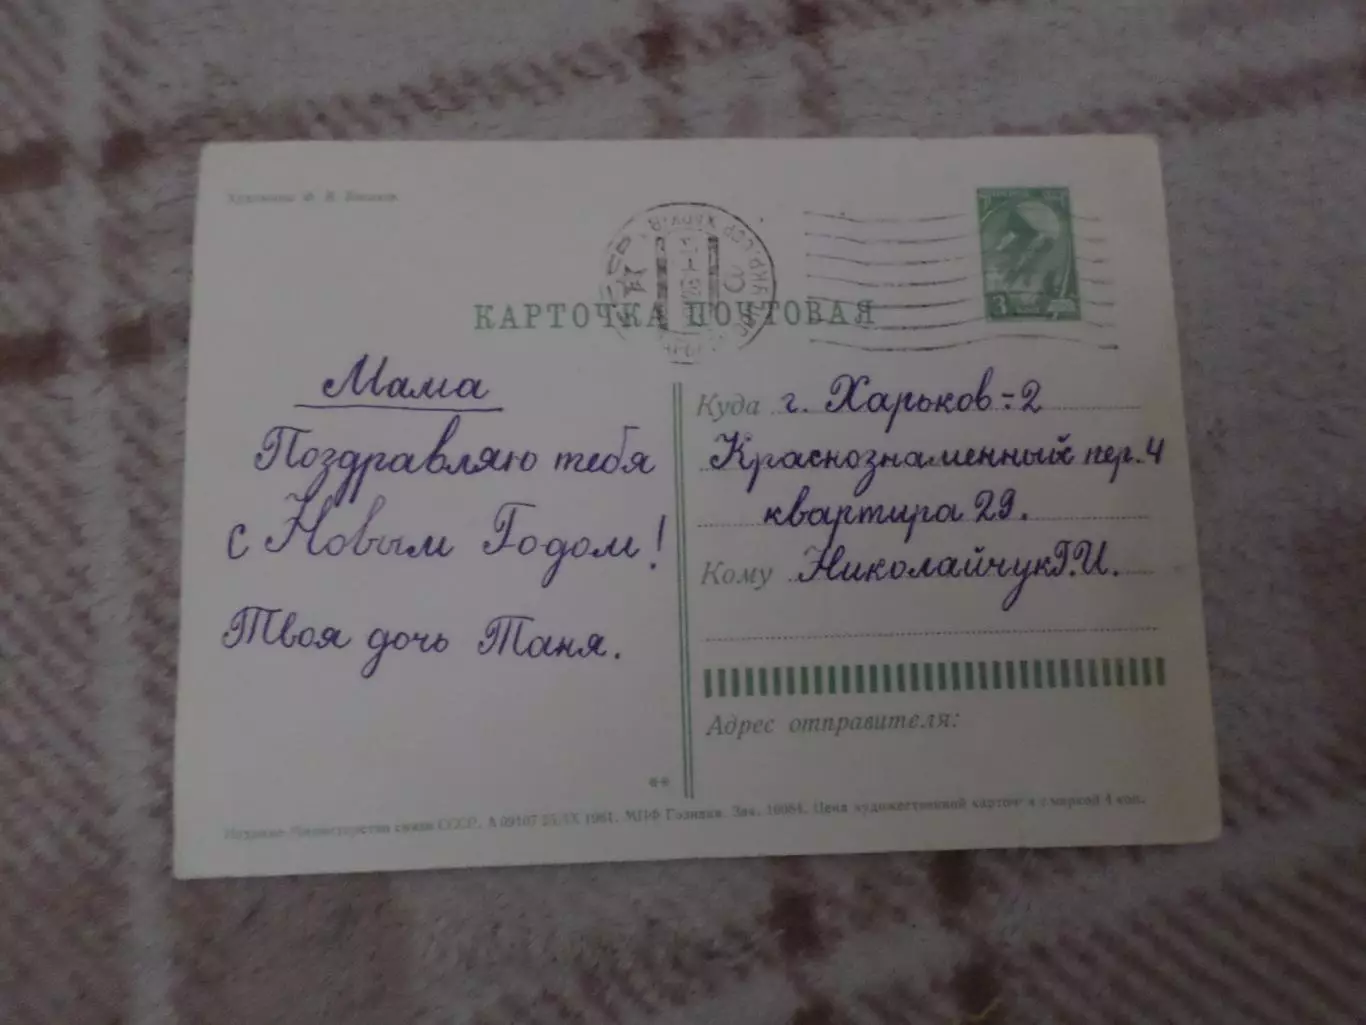 Художник Ф. В.
КАРТОЧКА ПОЧТОВАЯ
3
Мама
Поздравляю тебя
с Новым Годом!
Твоя дочь Таня.
Куда г. Харьков-2
Краснознаменный пер. 4
квартира 29.
Кому Николайчук Г.И.
Адрес отправителя:
**
Издание Министерства связи СССР. А 09107 25/IX 1961. МПФ Гознака. Зак. 16084. Цена художественной карточки с маркой 4 коп.